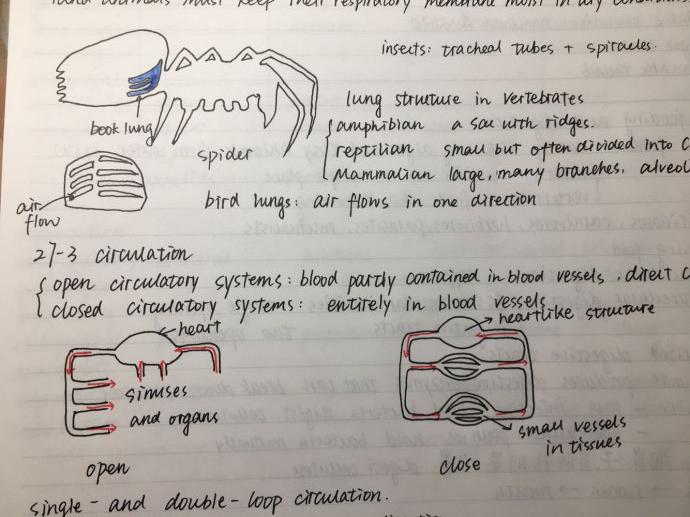 land animals must keep their respiratory membrane moist in dry conditions
insects: tracheal tubes + spiracles.
book lung
spider
lung structure in vertebrates
amphibian a sac with ridges.
reptilian small but often divided into
mammalian large, many branches, alveol
air flow
bird lungs: air flows in one direction
27-3 circulation
open circulatory systems: blood partly contained in blood vessels, direct c
closed circulatory systems: entirely in blood vessels
heart
sinuses
and organs
open
heartlike structure
small vessels
in tissues
close
single- and double-loop circulation.